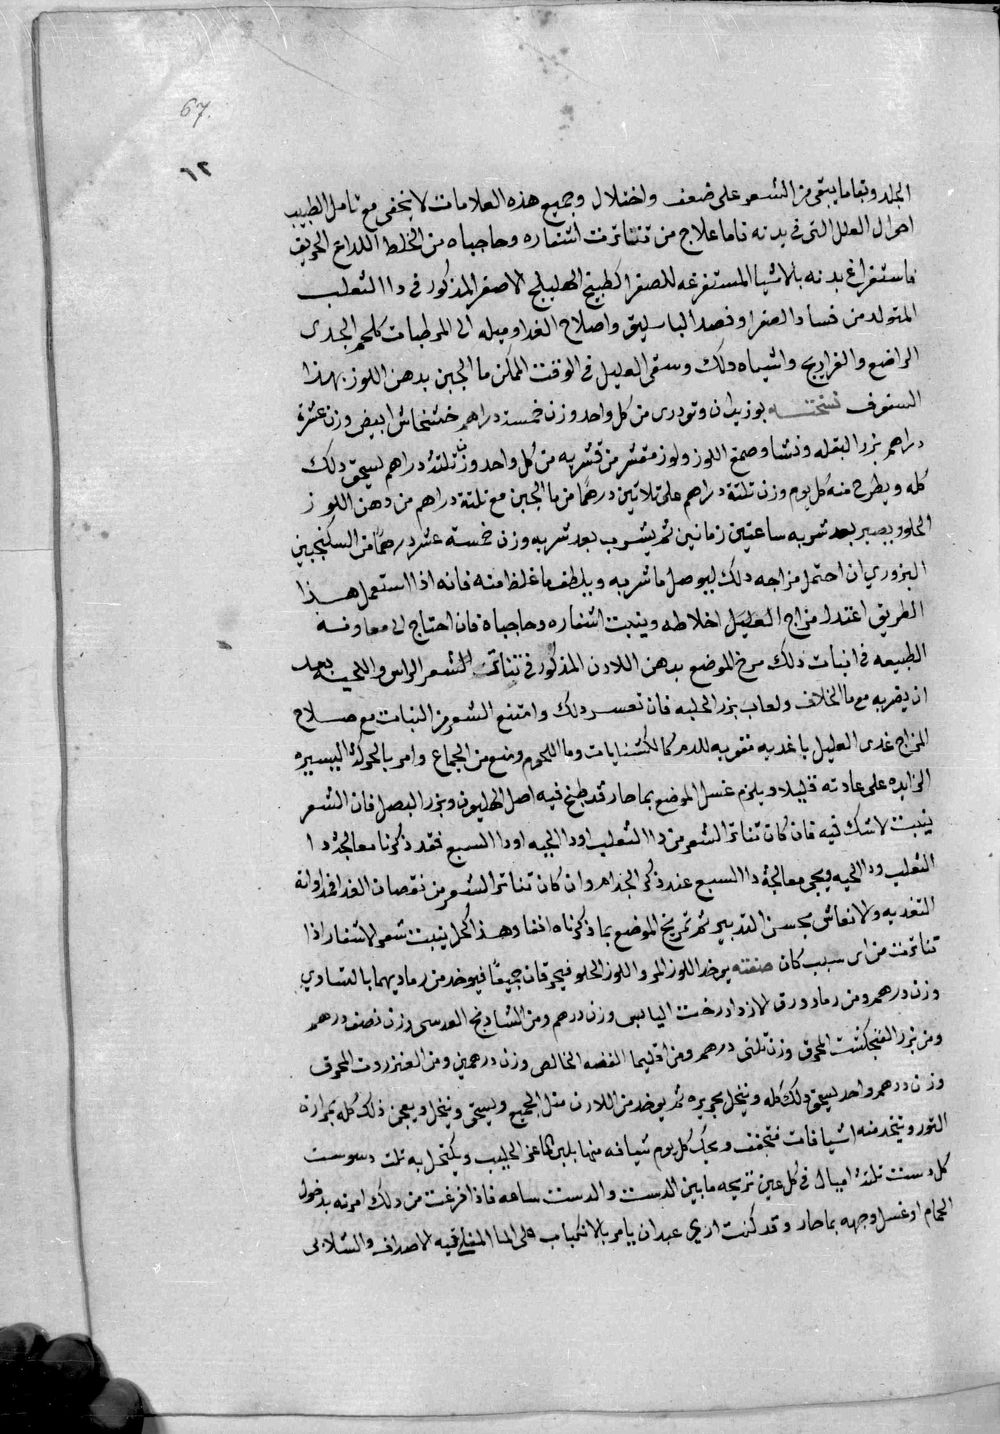 67.
٦٢
الجلد وبقا ما يبقى من الشعر على ضعف واختلال وجميع هذه العلامات لا يخفى مع تامل الطبيب
احوال العلل التى فى بدنه فاما علاج من تتناثرت اشفاره وحاجباه من الخلط اللداع الحريق
فاستفراغ بدنه بالاشيا المستفرغه للصفرا كطبيخ الهليلج الاصفر المذكور فى دا الثعلب
المتولد من فساد الصفرا وفصد الباسليق واصلاح الغدا وميله الى المرطبات كلحم الجدى
الراضع والفراريج واشباه دلك وسقى العليل فى الوقت الممكن ما الجبن بدهن اللوز بهذا
السفوف نسخته بوزيدان وتودرى من كل واحد وزن خمسة دراهم خشخاش ابيض وزن عشرة
دراهم بزر البقله ونشا وصمغ اللوز ولوز مقشر من قشريه من كل واحد وزن ثلثة دراهم يسحق دلك
كله ويطرح منه كل يوم وزن ثلتة دراهم على ثلاثين درهما من ما الجبن مع ثلتة دراهم من دهن اللوز
الحلو ويصبر بعد شربه ساعتين زمانين ثم يشرب بعد شربه وزن خمسة عشر درهما من السكنجبين
البزوري ان احتمل مزاجه دلك ليوصل ما شربه ويلطف ما غلظ منه فانه اذا استعمل هذا
الطريق اعتدل مزاج العليل اخلاطه وينبت اشفاره وحاجباه فان احتاج الى معاونة
الطبيعه فى انبات ذلك مرخ الموضع بدهن اللادن المذكور فى تناثر الشعر الراس واللحيه بعد
ان يضربه مع ما الخلاف ولعاب بزر الحلبه فان تعسر دلك وامتنع الشعر من النبات مع صلاح
المزاج غدى العليل باغديه مقويه للدم كالكشتابات وما اللحوم ومنع من الجماع وامر بالحركة اليسيره
الزايده على عادته قليلا ويلزم غسل الموضع بما حار قد طبخ فيه اصل الهليون وبزر البصل فان الشعر
ينبت لاشك فيه فان كان تناثر الشعر من دا الثعلب او دا الحيه او دا السبع فقد ذكرنا معالجة دا
الثعلب ودا الحيه ويجى معالجة دا السبع عند ذكر الجذام وان كان تناثر الشعر من نقصان الغدا فمداواته
التغديه والانعاش بحسن التدبير ثم تمريخ الموضع بما ذكرناه انفا وهذا كحل ينبت شعر الاشفار اذا
تناثرت من اى سبب كان صفته يوخد اللوز المر واللوز الحلو فيحرقان جميعًا فيوخد من رماديهما بالتساوي
وزن درهم ومن رماد ورق الازاددرخت اليابس وزن درهم ومن الشادنج العدسى وزن نصف درهم
ومن بزر الفنجكشت المحرق وزن ثلثى درهم ومن اقليما الفضه الخالص وزن درهمين ومن العنزروت المحرق
وزن درهم واحد يسحق دلك كله وينخل بحريره ثم يوخد من اللادن مثل الجميع ويسحق وينخل ويعجن ذلك كله بمرارة
الثور ويتخد منه اشيافات فتجفف ويحك كل يوم شيافه منها بلبن ماعز الحليب ويكتحل به ثلث دسوست
كل دست ثلثة اميال فى كل عين تريحه ما بين الدست والدست ساعه فاذا فرغت من دلك امرته بدخول
الحمام او غسل وجهه بما حار وقد كنت ارى عبدان يامر بالانكباب على الما المغلى فيه الاصداف والشلابى